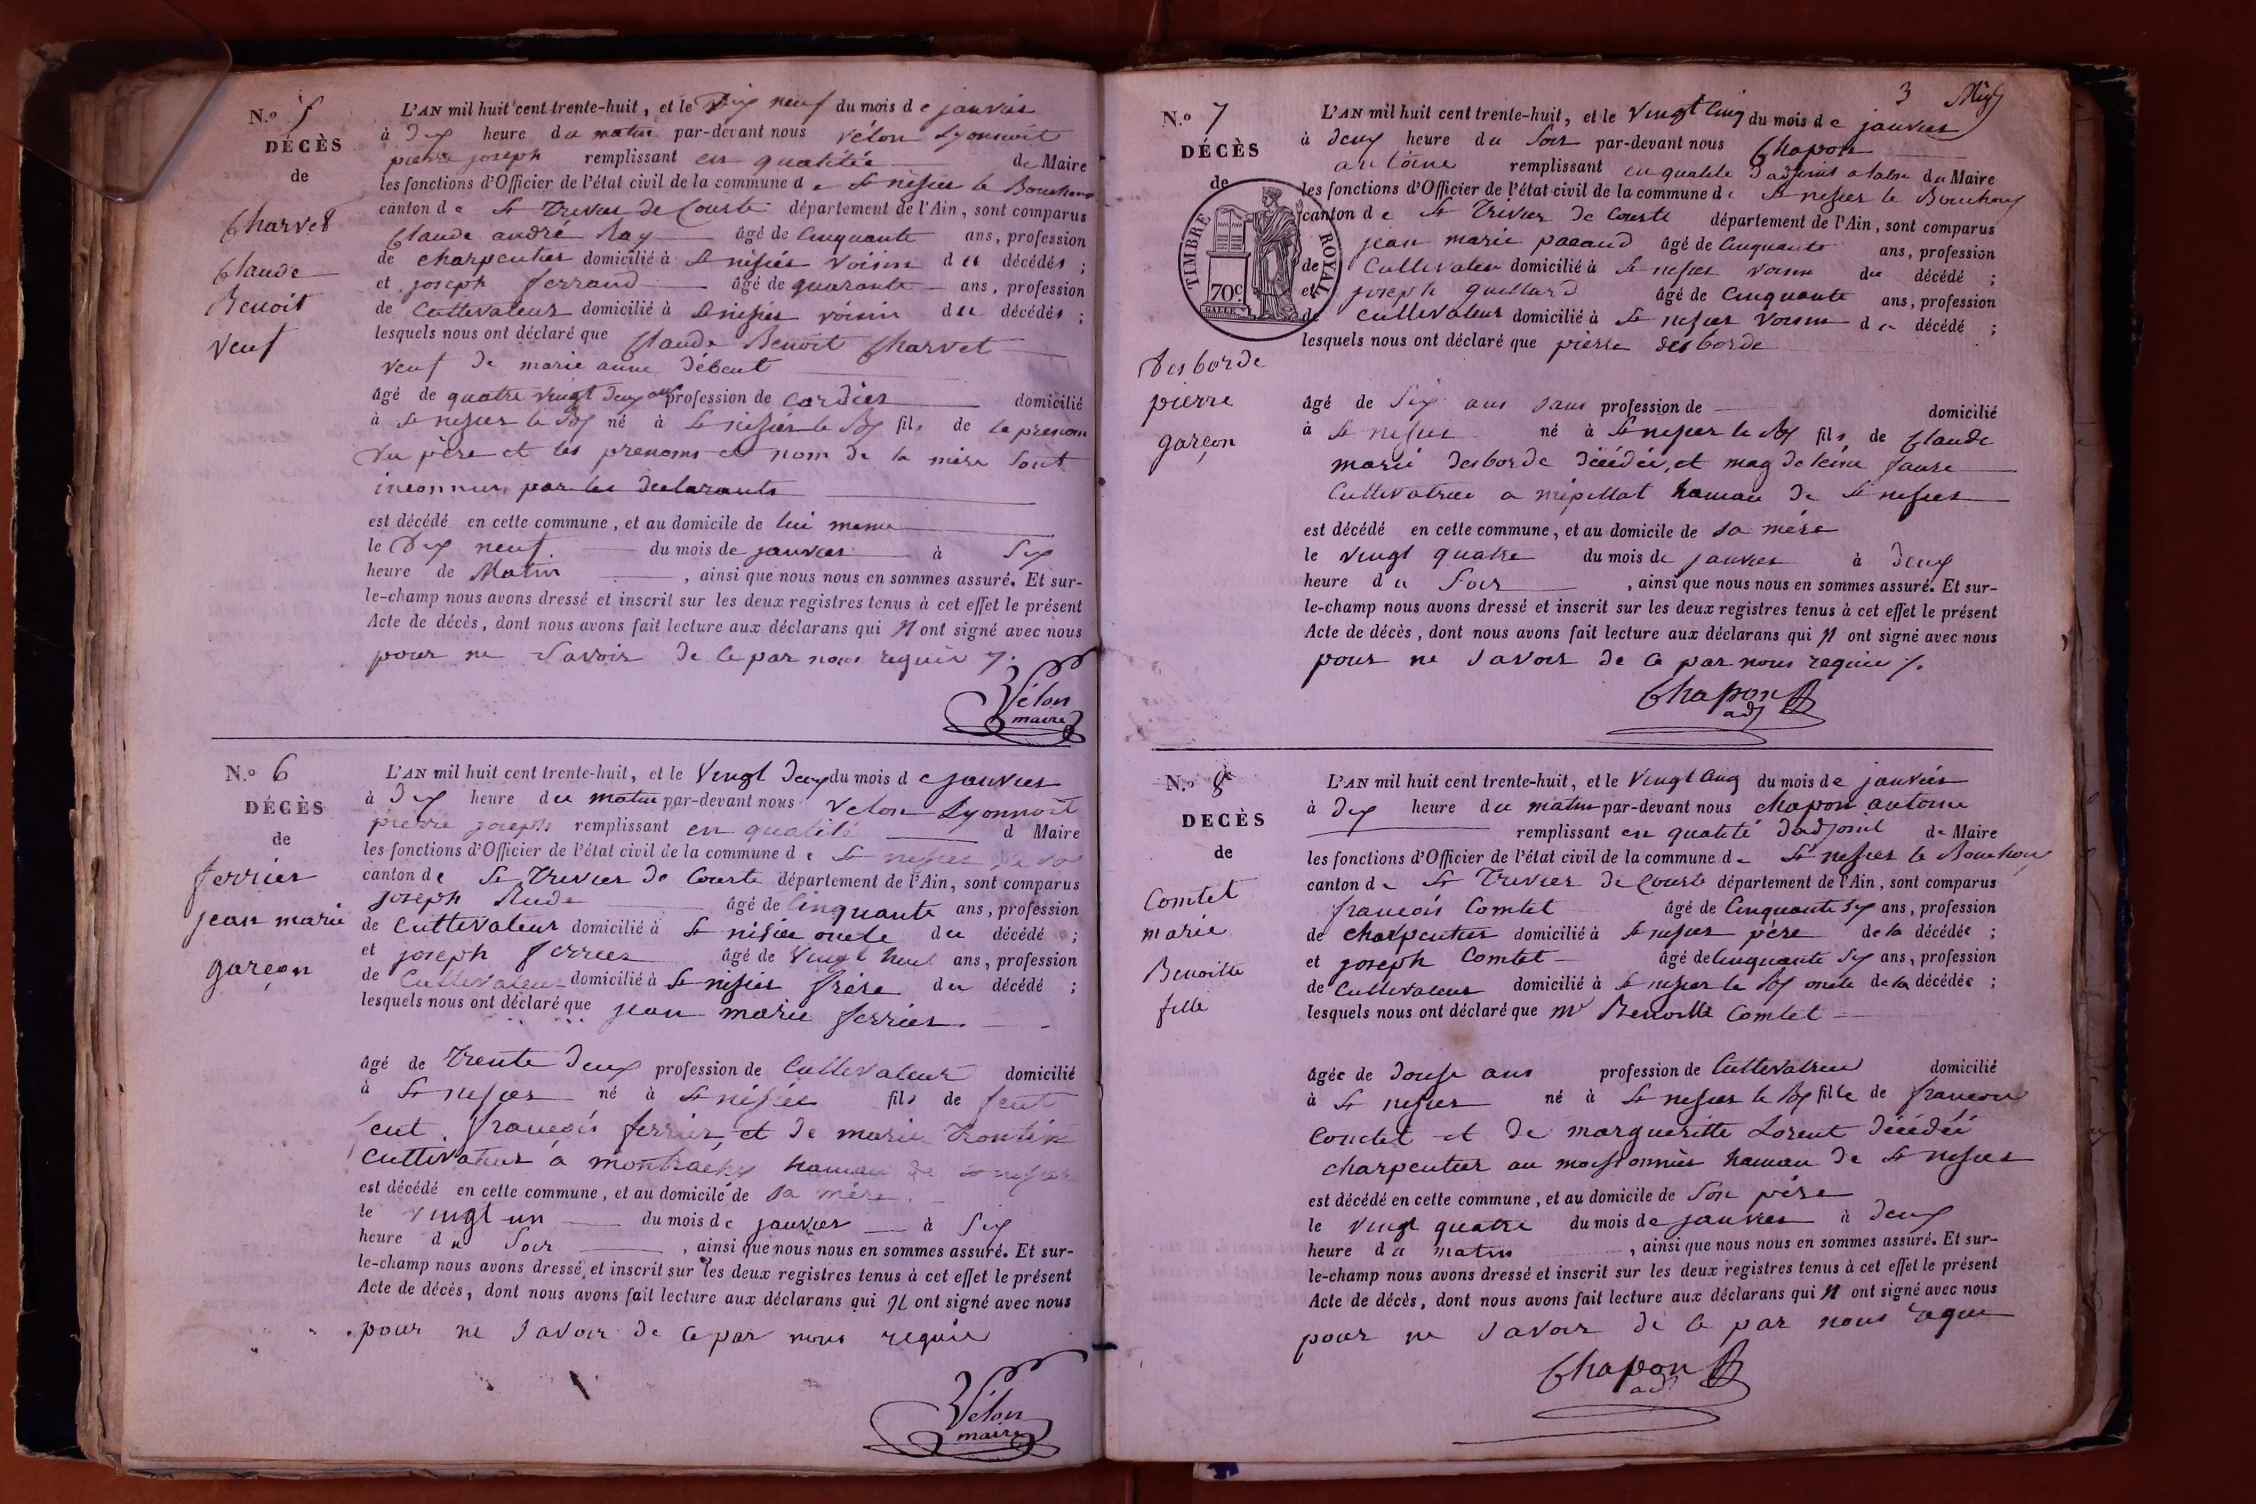 N.o 5
DÉCÈS
de
Charvet
Claude
Benoit
veuf
L'AN mil huit cent trente-huit, et le Dix neuf du mois de janvier
à Dix heure du matin par-devant nous vélon Lyonnoit
pierre joseph remplissant en qualitée de Maire
les fonctions d'Officier de l'état civil de la commune de St nisier le Bouchoux
canton de St Trivier de Courte département de l'Ain, sont comparus
Claude andré Ray âgé de Cinquante ans, profession
de charpentier domicilié à St nisier voisin du décédés ;
et joseph ferrand âgé de quarante ans, profession
de Cultivateur domicilié à St nisier voisin du décédés ;
lesquels nous ont déclaré que Claude Benoit Charvet
veuf de marie anne débeut
âgé de quatre vingt deux ans profession de cordier domicilié
à St nisier le Bx né à St nisier le Bx fils de le prenom
Du père et les prenoms et nom de la mère sont
inconnus par les declarants
est décédé en cette commune, et au domicile de lui meme
le Dix neuf du mois de janvier à Six
heure de Matin , ainsi que nous nous en sommes assuré. Et sur-
le-champ nous avons dressé et inscrit sur les deux registres tenus à cet effet le présent
Acte de décès, dont nous avons fait lecture aux déclarans qui n ont signé avec nous
pour ne savoir de ce par nous requis /.
Vélon
maire
N.o 6
DÉCÈS
de
ferrier
jean marie
garçon
L'AN mil huit cent trente-huit, et le Vingt deux du mois de janvier
à Dix heure du matin par-devant nous Velon Lyonnoit
pierre joseph remplissant en qualité d Maire
les fonctions d'Officier de l'état civil de la commune de St nisier
canton de St Trivier de Courte département de l'Ain, sont comparus
joseph Rude âgé de Cinquante ans, profession
de Cultivateur domicilié à St nisier oncle du décédé ;
et joseph ferrier âgé de Vingt huit ans, profession
de Cultivateur domicilié à St nisier frère du décédé ;
lesquels nous ont déclaré que jean marie ferrier.
âgé de Trente deux profession de Cultivateur domicilié
à St nisier né à St nisier fils de feut
françois ferrier, et de marie
Cultivateur à hameau de St nisier
est décédé en cette commune, et au domicile de sa mère.
le vingt un du mois de janvier à Six
heure du Soir , ainsi que nous nous en sommes assuré. Et sur-
le-champ nous avons dressé et inscrit sur les deux registres tenus à cet effet le présent
Acte de décès, dont nous avons fait lecture aux déclarans qui n ont signé avec nous
pour ne savoir de ce par nous requis
Vélon
maire
3
N.o 7
DÉCÈS
de
TIMBRE ROYAL
70c
Desborde
pierre
garçon
L'AN mil huit cent trente-huit, et le Vingt Cinq du mois de janvier
à deux heure du Soir par-devant nous Chapon
antoine remplissant en qualité d'adjoint du Maire
les fonctions d'Officier de l'état civil de la commune de St nisier le Bouchoux
canton de St Trivier de Courte département de l'Ain, sont comparus
jean marie pacaud âgé de Cinquante ans, profession
de Cultivateur domicilié à St nisier voisin du décédé ;
et joseph guillard âgé de Cinquante ans, profession
de cultivateur domicilié à St nisier Voisin de décédé ;
lesquels nous ont déclaré que pierre desborde
âgé de Six ans sans profession de domicilié
à St nisier né à St nisier le Bx fils de Claude
marie desborde décédée, et magdeleine faure
Cultivatrice a mépillat hameau de St nisier
est décédé en cette commune, et au domicile de sa mère
le vingt quatre du mois de janvier à deux
heure du Soir , ainsi que nous nous en sommes assuré. Et sur-
le-champ nous avons dressé et inscrit sur les deux registres tenus à cet effet le présent
Acte de décès, dont nous avons fait lecture aux déclarans qui n ont signé avec nous
pour ne savoir de ce par nous requis /.
Chapon
adj
N.o 8
DECÈS
de
Comtet
marie
Benoitte
fille
L'AN mil huit cent trente-huit, et le Vingt Cinq du mois de janvier
à Dix heure du matin par-devant nous chapon antoine
remplissant en qualité d'adjoint de Maire
les fonctions d'Officier de l'état civil de la commune de St nisier le Bouchoux
canton de St Trivier de Courte département de l'Ain, sont comparus
françois Comtet âgé de Cinquante six ans, profession
de charpentier domicilié à St nisier père de la décédée ;
et joseph Comtet âgé de Cinquante Six ans, profession
de Cultivateur domicilié à St nisier le Bx oncle de la décédée ;
lesquels nous ont déclaré que mie Benoitte Comtet
âgée de douse ans profession de Cultivatrice domicilié
à St nisier né à St nisier le Bx fille de françois
Comtet et de margueritte Lorent décédée
charpentier au moissonnier hameau de St nisier
est décédé en cette commune, et au domicile de Son père
le vingt quatre du mois de janvier à deux
heure du matin , ainsi que nous nous en sommes assuré. Et sur-
le-champ nous avons dressé et inscrit sur les deux registres tenus à cet effet le présent
Acte de décès, dont nous avons fait lecture aux déclarans qui n ont signé avec nous
pour ne savoir de ce par nous requi
Chapon
adj